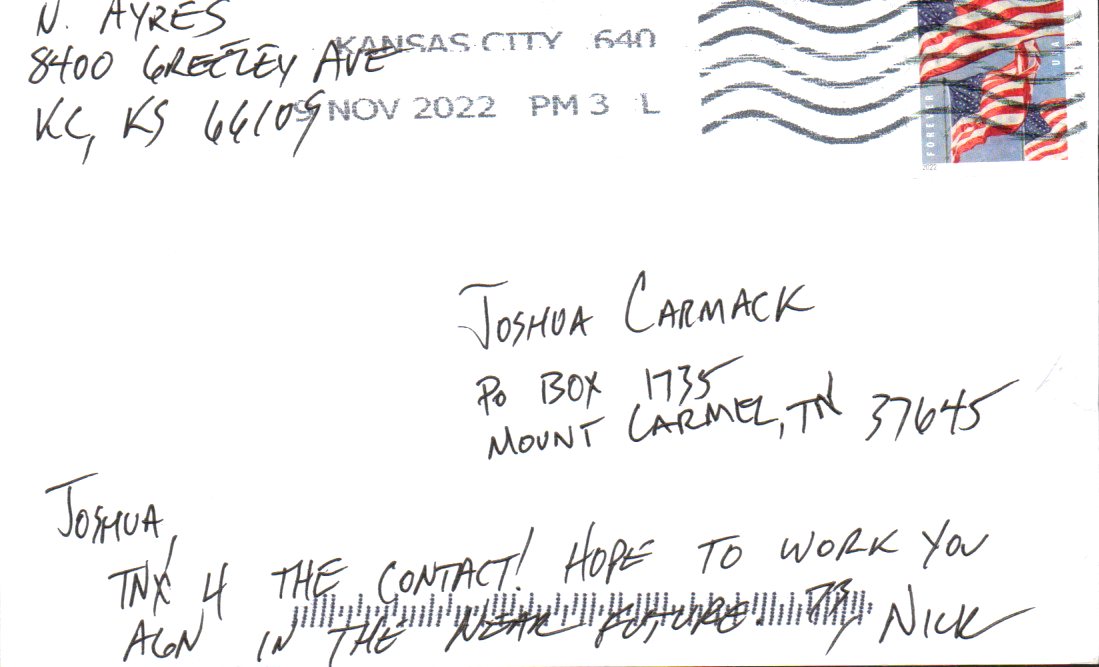 N. AYRES
8400 GREELEY AVE
KC, KS 66109
KANSAS CITY 640
9 NOV 2022 PM 3 L
FOREVER USA
2022
JOSHUA CARMACK
PO BOX 1735
MOUNT CARMEL, TN 37645
JOSHUA,
TNX 4 THE CONTACT! HOPE TO WORK YOU
AGN IN THE NEAR FUTURE. 73, NICK